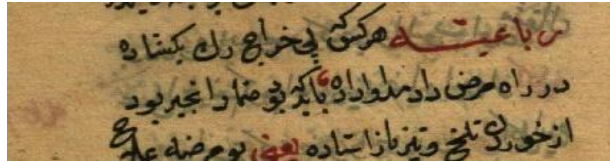 رباعیه هرکس که پی خراج رک بکشاده
در راه مرض داد مداوا داده باید که بو ضماد انجیر بود
از خوردن تلخ و تیز باز استاده یعنی بو مرضه علاج